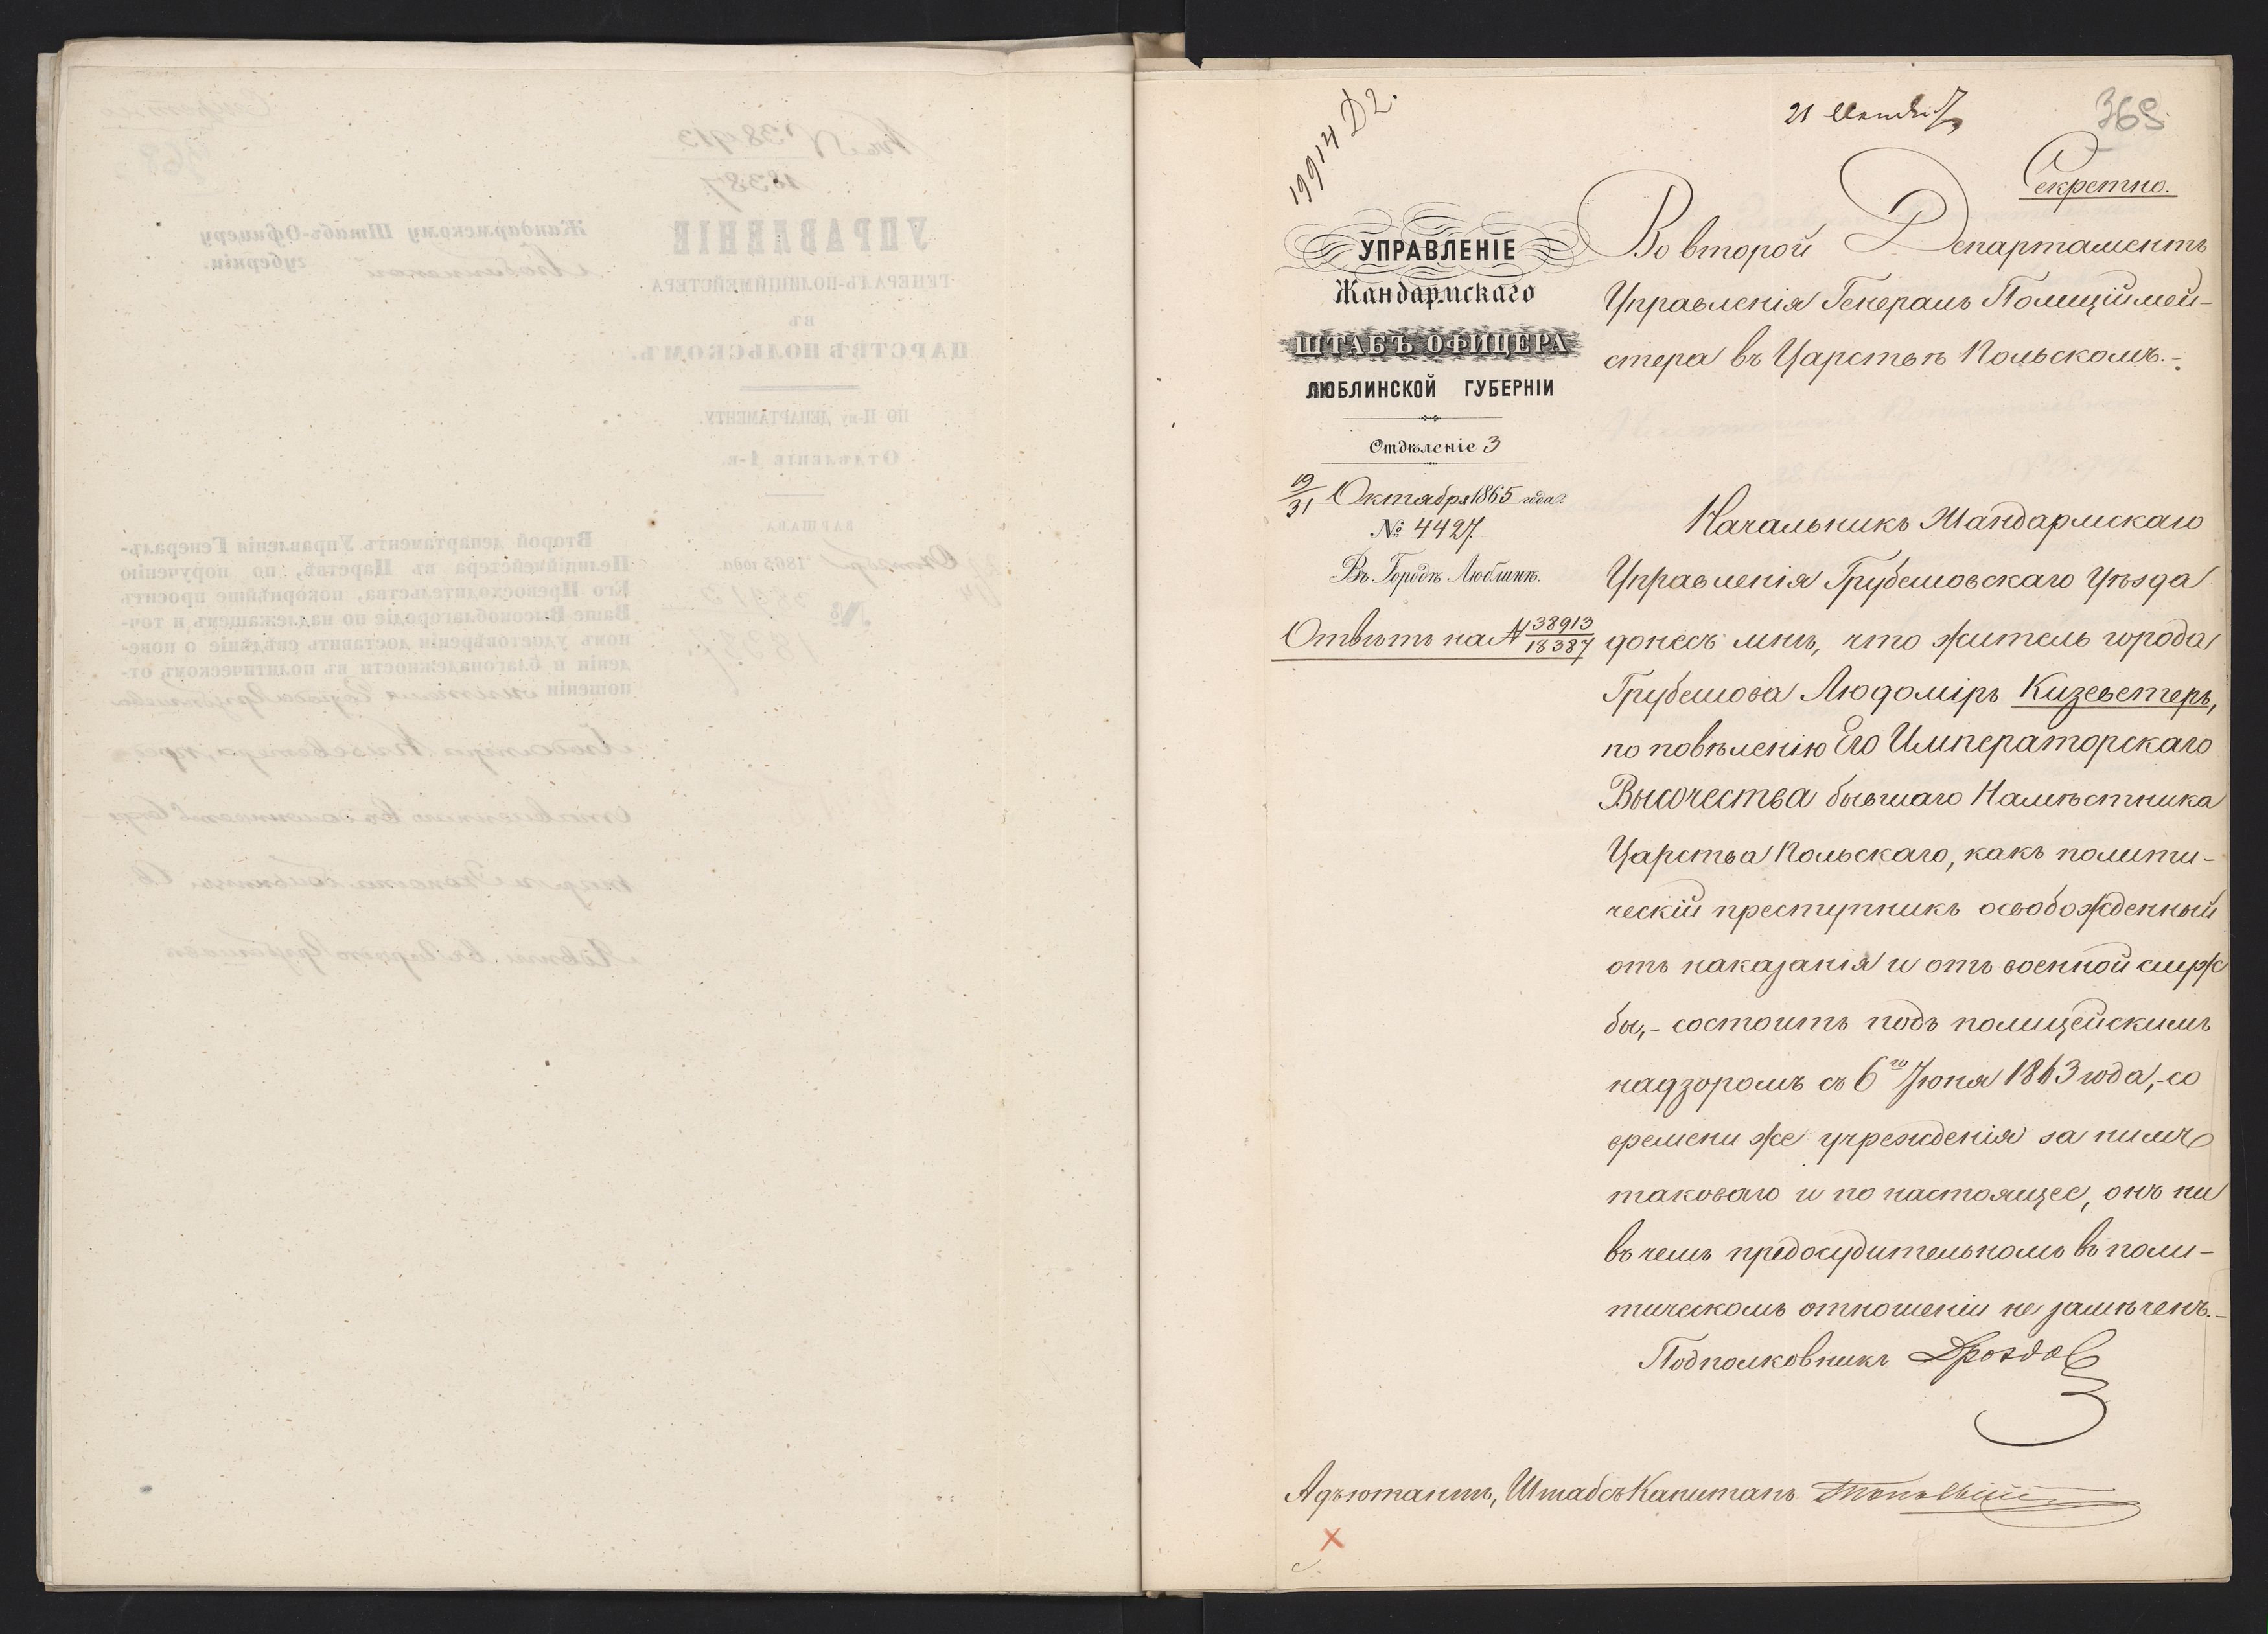 19914 Д2.
21 Октября
369.
Секретно.
УПРАВЛЕНІЕ
Жандармскаго
ШТАБЪ ОФИЦЕРА
ЛЮБЛИНСКОЙ ГУБЕРНІИ
Отдѣленіе 3
19/31 Октября 1865 года
№ 4427.
Въ Городѣ Люблинѣ.
Отвѣтъ на № 38913/18387
Во второй Департаментъ
Управленія Генералъ Полиціймей-
стера въ Царствѣ Польскомъ.-
Начальникъ Жандармскаго
Управленія Грубешовскаго Уѣзда
донесъ мнѣ, что житель города
Грубешова Людоміръ Кизеветеръ,
по повѣленію Его Императорскаго
Высочества бывшаго Намѣстника
Царства Польскаго, какъ полити-
ческій преступникъ освобожденный
отъ наказанія и отъ военной служ
бы,- состоитъ подъ полицейскимъ
надзоромъ съ 6го Іюня 1863 года,- со
времени же учрежденія за нимъ
таковаго и по настоящее, онъ ни
въ чемъ предосудительномъ въ поли-
тическомъ отношеніи не замѣченъ.-
Подполковникъ Дроздов
Адъютантъ, Штабсъ Капитанъ